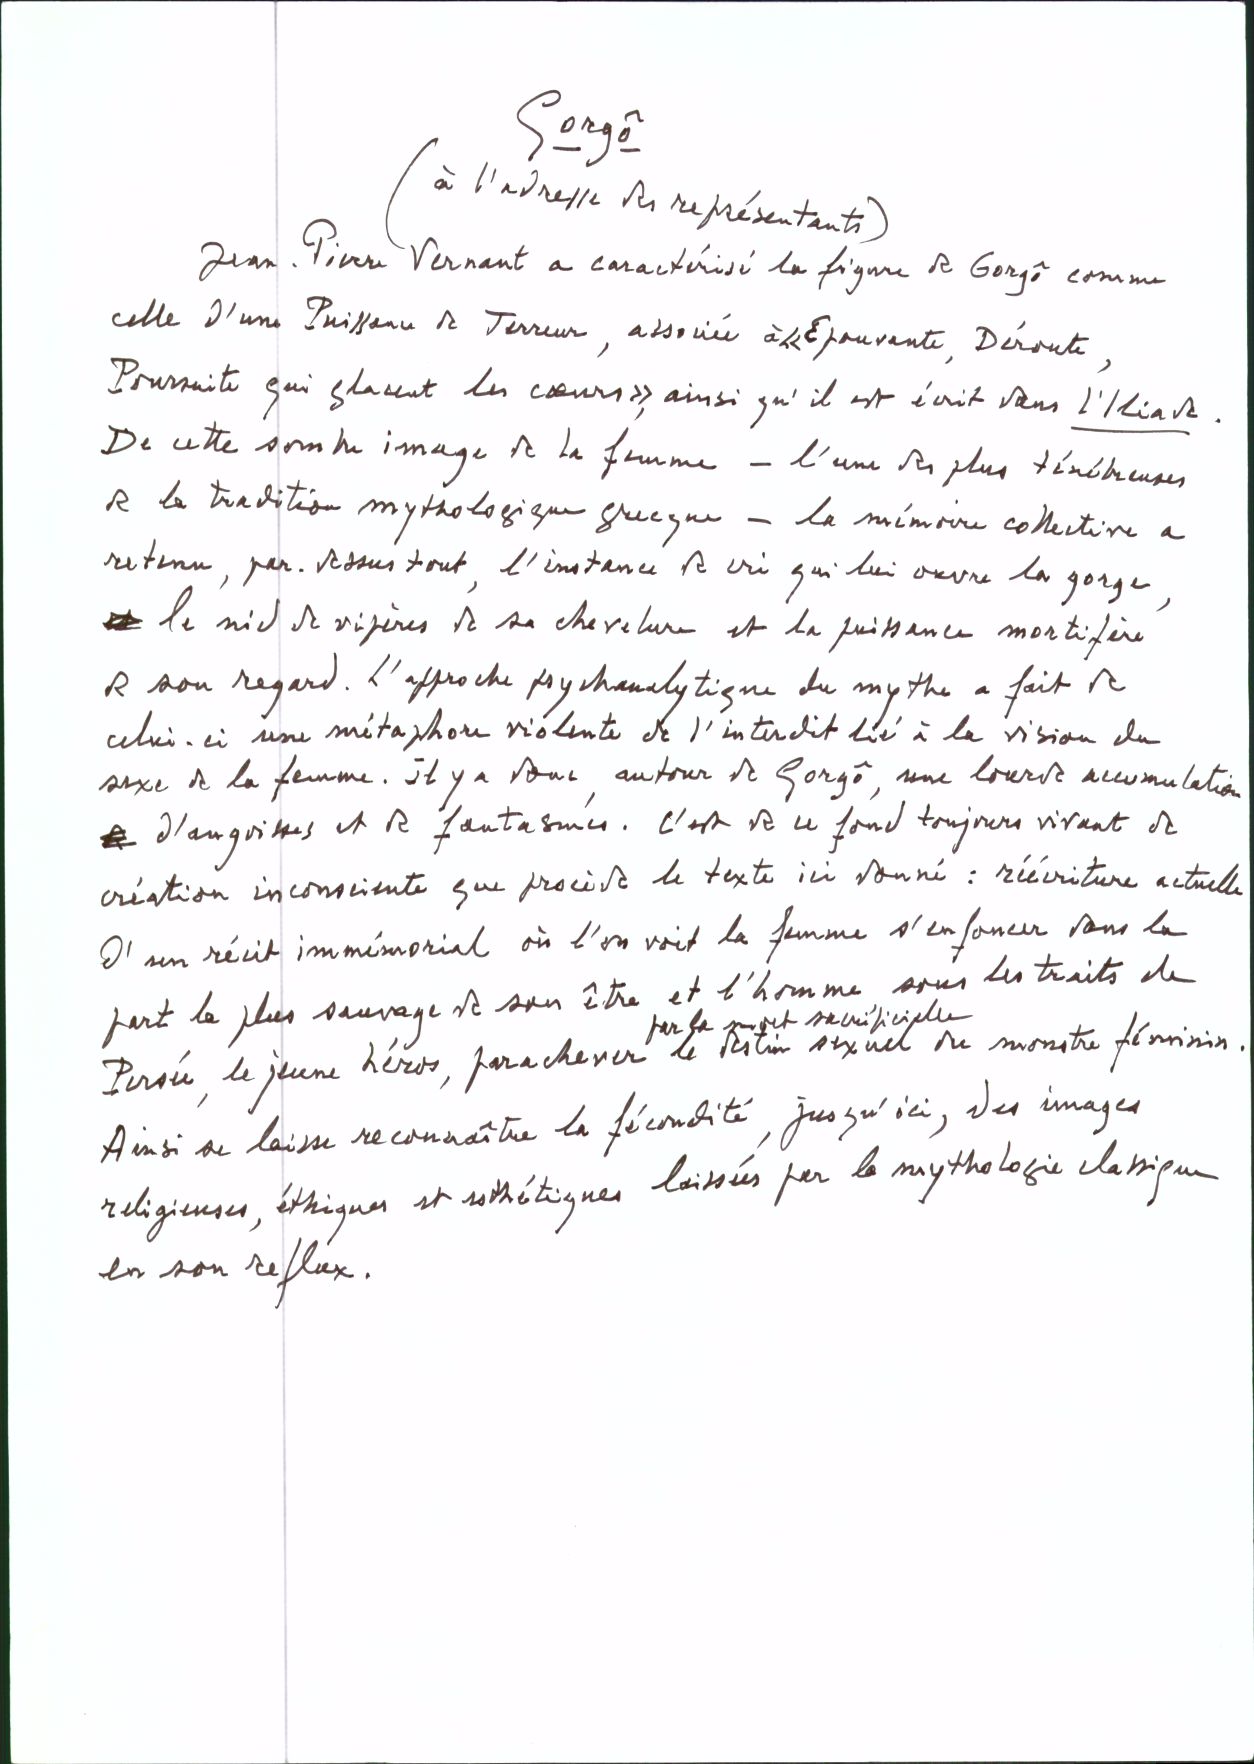 Gorgô
(à l'adresse des représentants)
Jean-Pierre Vernant a caractérisé la figure de Gorgô comme
celle d'une Puissance de Terreur, associée à « Epouvante, Déroute,
Poursuite qui glacent les cœurs », ainsi qu'il est écrit dans l'Iliade.
De cette sombre image de la femme – l'une des plus ténébreuses
de la tradition mythologique grecque – la mémoire collective a
retenu, par-dessus tout, l'instance de cri qui lui ouvre la gorge,
le nid de vipères de sa chevelure et la puissance mortifère
de son regard. L'approche psychanalytique du mythe a fait de
celui-ci une métaphore violente de l'interdit lié à la vision du
sexe de la femme. Il y a donc, autour de Gorgô, une lourde accumulation
d'angoisses et de fantasmes. C'est de ce fond toujours vivant de
création inconsciente que procède le texte ici donné : réécriture actuelle
d'un récit immémorial où l'on voit la femme s'enfoncer dans la
part la plus sauvage de son être et l'homme sous les traits de
par la mort sacrificielle
Persée, le jeune héros, parachever le destin sexuel du monstre féminin.
Ainsi se laisse reconnaître la fécondité, jusqu'ici, des images
religieuses, éthiques et esthétiques laissées par la mythologie classique
en son reflux.